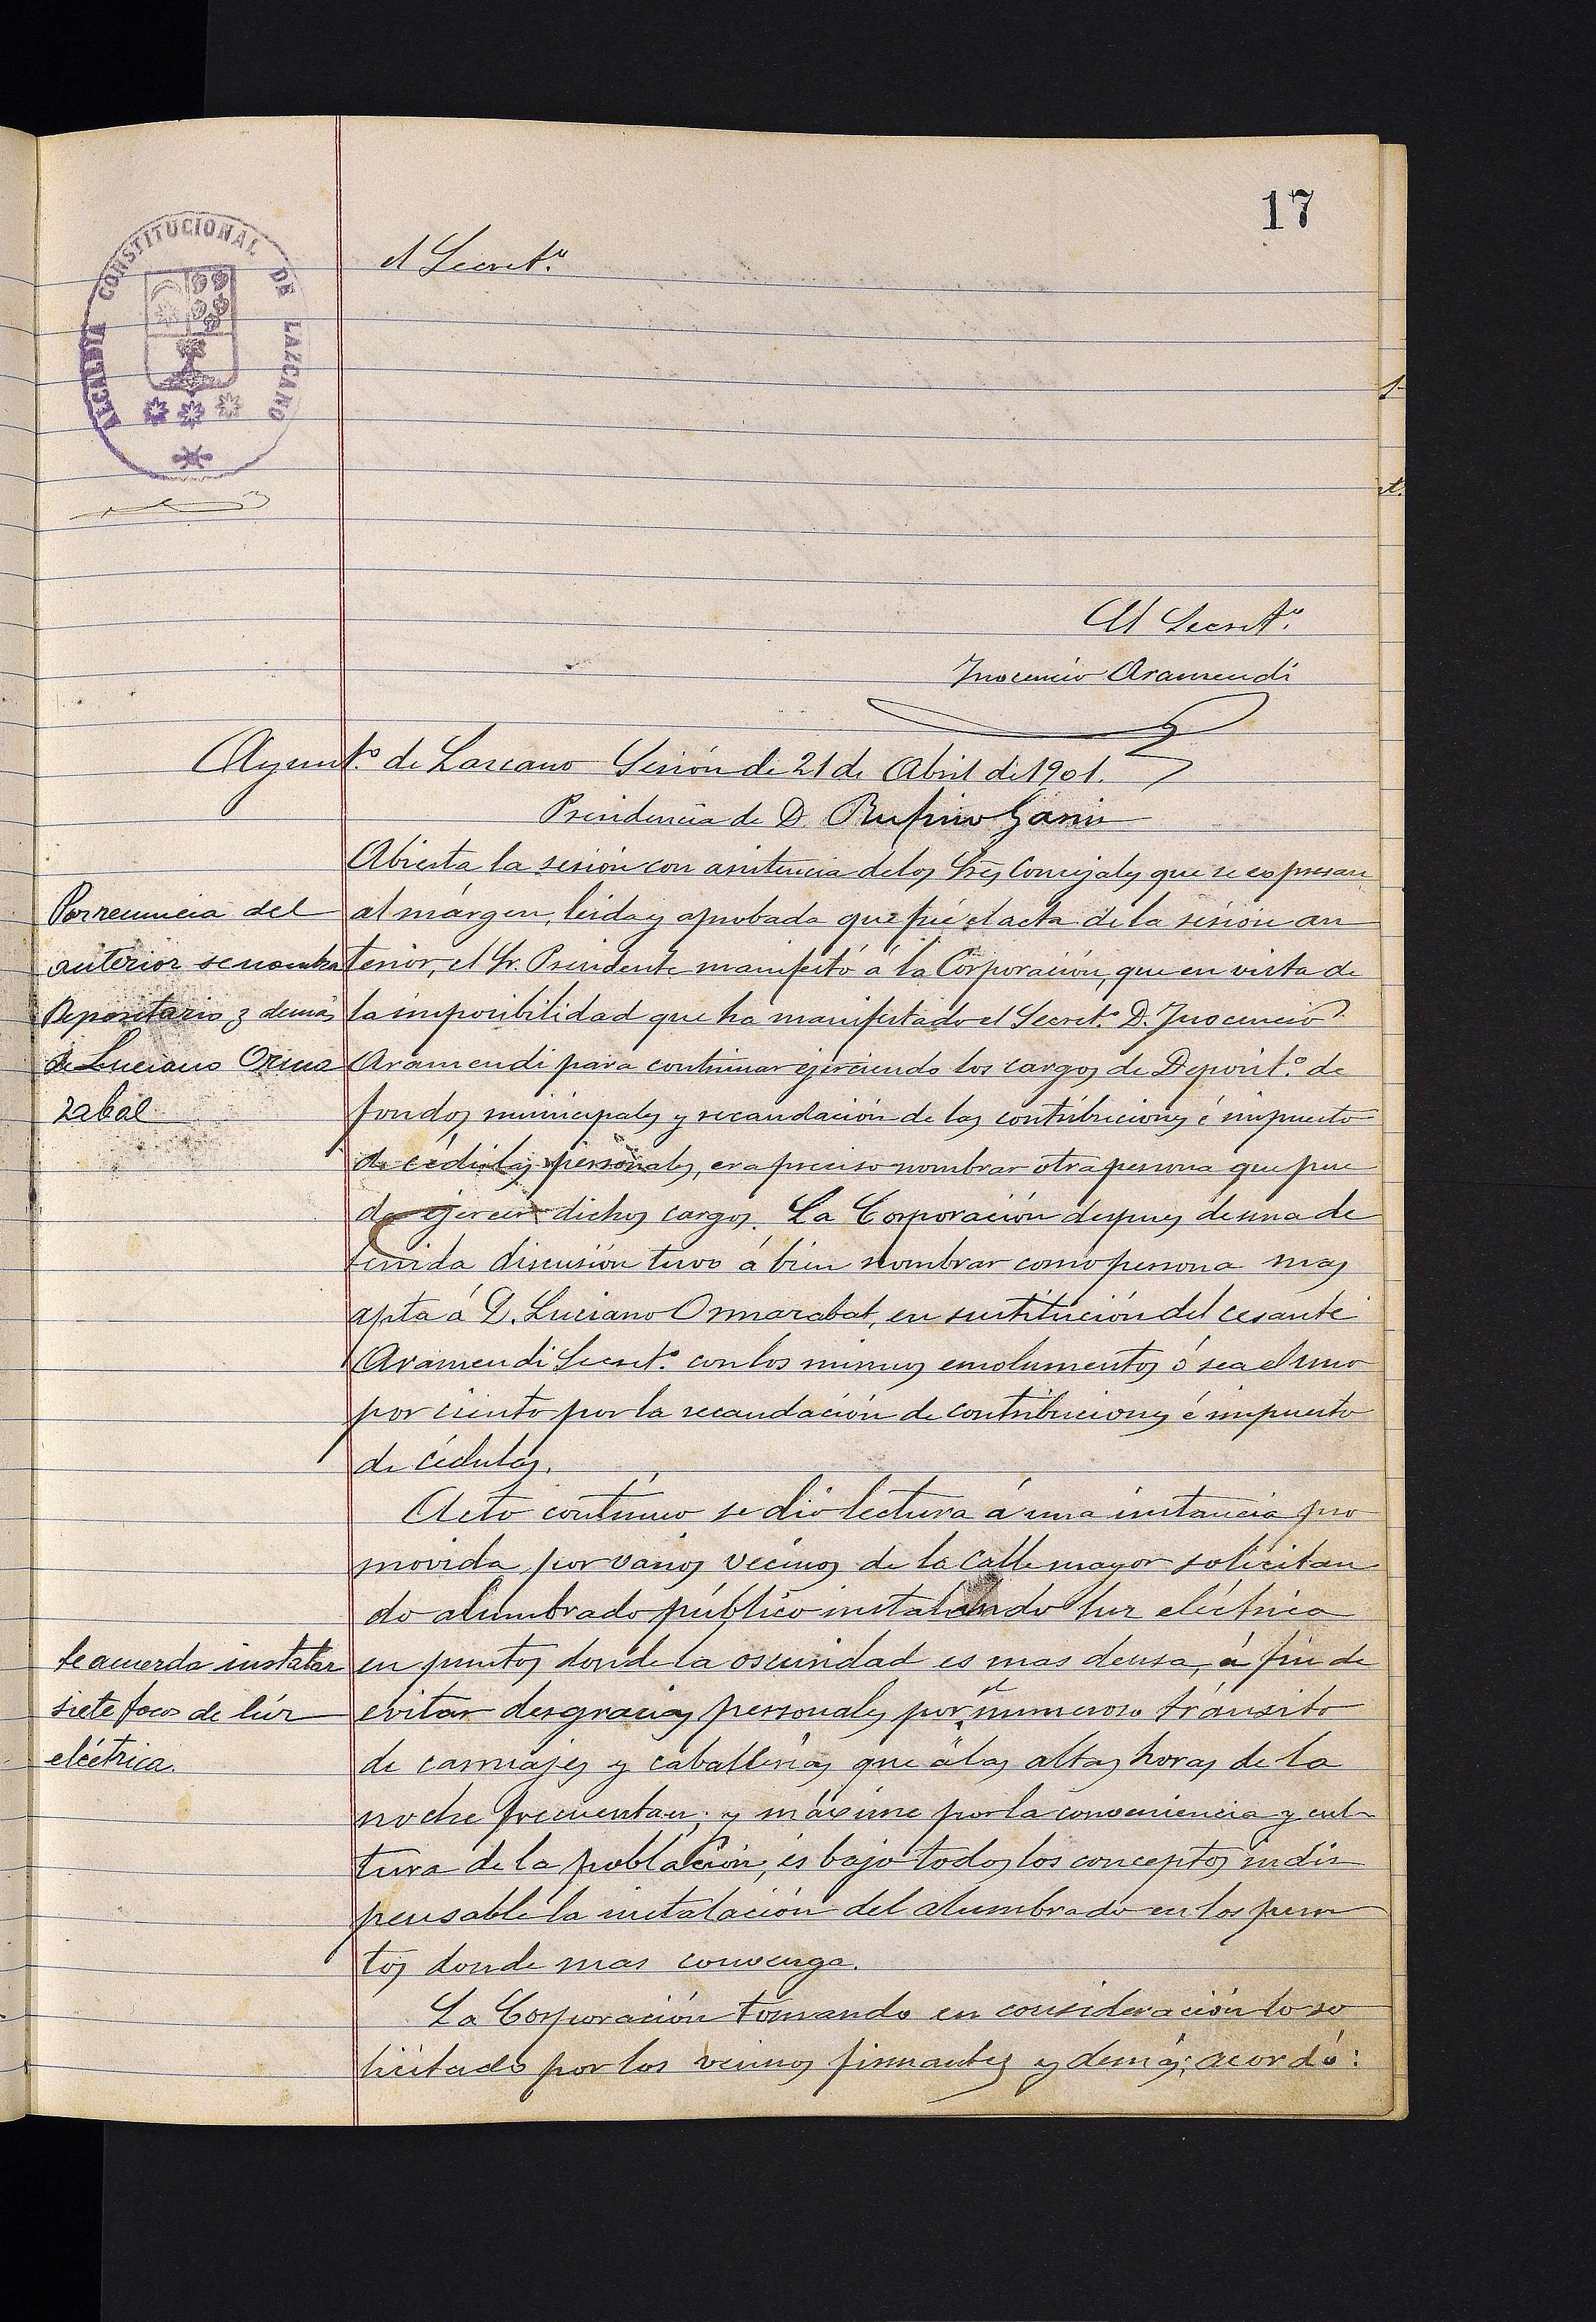 17
ALCALDIA CONSTITUCIONAL DE LAZCANO
el Secret.º
El Secret.º
Inocencio Aramendi
Ayunt.º de Lazcano Sesión de 21 de Abril de 1901.
Presidencia de D. Rufino
Abierta la sesión con asistencia de los Sres Concejales que se espresan
al márgen, leida y aprobada que fué el acta de la sesión an
terior, el Sr. Presidente manifestó á la Corporación, que en vista de
la imposibilidad que ha manifestado el Secret.º D. Inocencio
Aramendi para continuar ejerciendo los cargos de Deposit.º de
fondos municipales y recaudación de las contribuciones é impuesto
de cédulas personales, era preciso nombrar otra persona que pue
da ejercer dichos cargos. La Corporación despues de una de
tenida discusión tuvo á bien nombrar como persona mas
apta á D. Luciano Ormazabal, en sustitución del cesante
Aramendi Secret.º con los mismos emolumentos ó sea el uno
por ciento por la recaudación de contribuciones é impuesto
de cédulas.
Por renuncia del
anterior se nombra
Depositario y demás
á Luciano Orma
zabal
Acto contínuo se dió lectura á una instancia pro
movida por varios vecinos de la Calle mayor solicitan
do alumbrado público instalando luz eléctrica
en puntos donde la oscuridad es mas densa, á fin de
evitar desgracias personales por el numeroso tránsito
de carruajes y caballerías que á las altas horas de la
noche frecuentan; y máxime por la conveniencia y cul-
tura de la población, es bajo todos los conceptos indis
pensable la instalación del alumbrado en los pun
tos donde mas convenga.
Se acuerda instalar
siete focos de lúz
eléctrica.
La Corporación tomando en consideración lo so
licitado por los vecinos firmantes y demás; acordó: